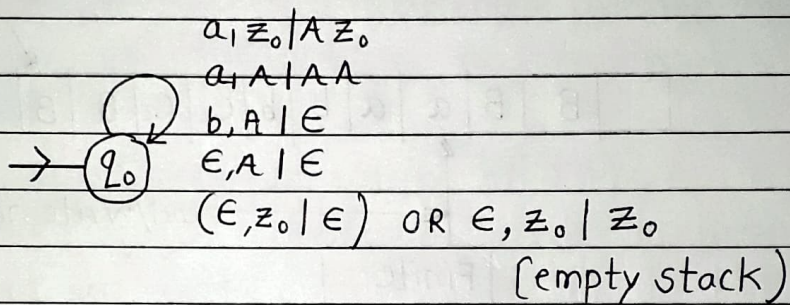 a, z₀ | A z₀
a, A | A A
b, A | ε
q₀ ε, A | ε
(ε, z₀ | ε) OR ε, z₀ | z₀
(empty stack)